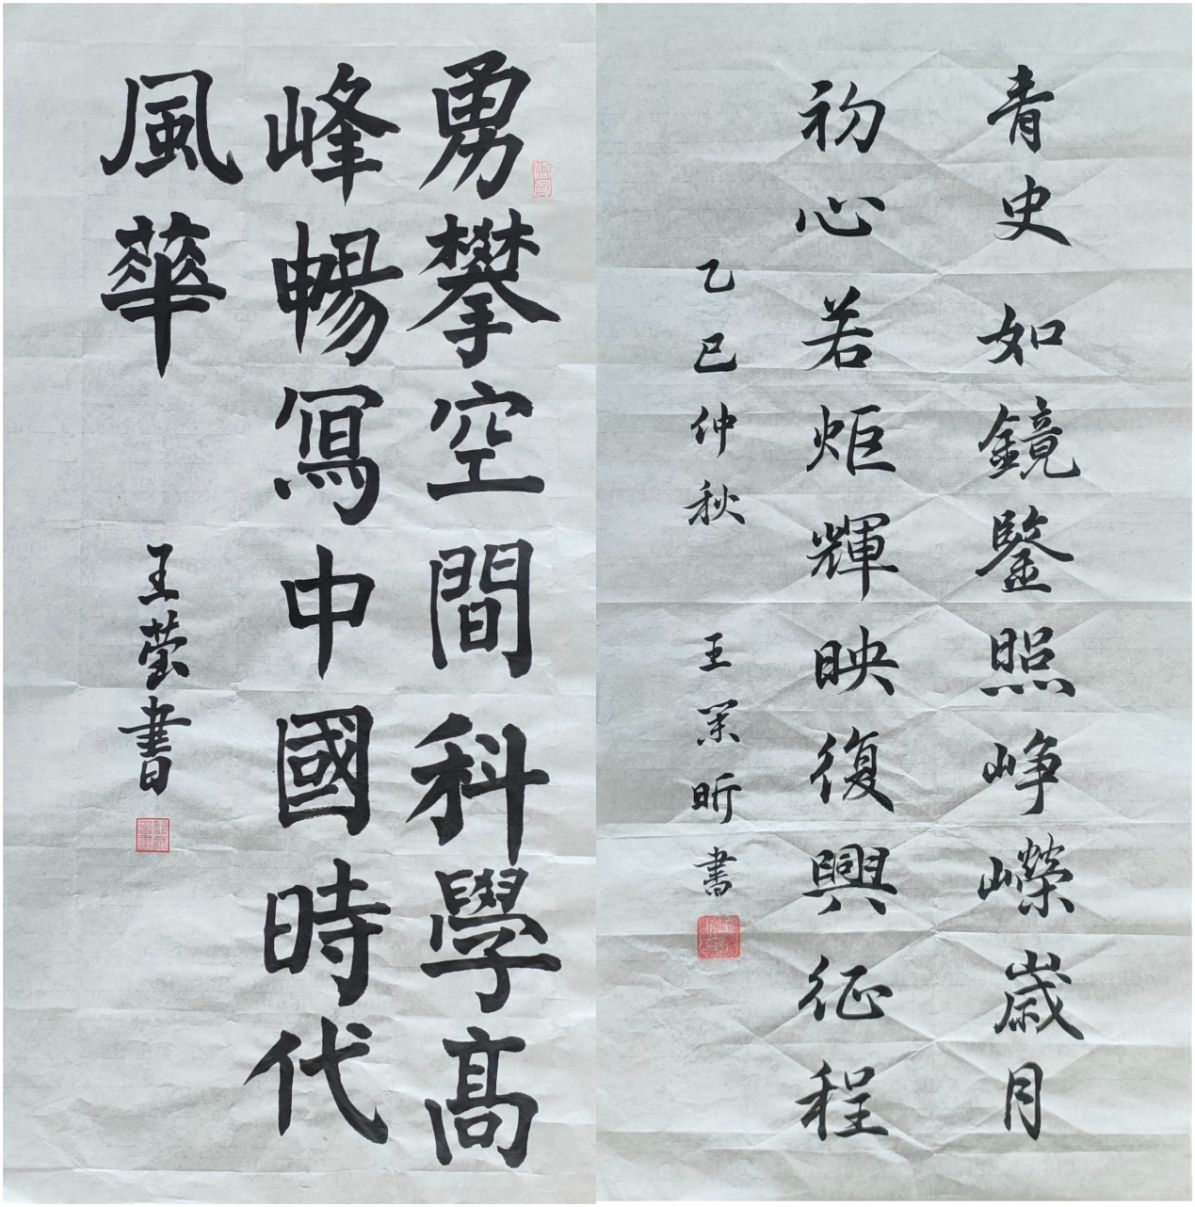 勇攀空間科學高
峰暢寫中國時代
風華
王莹書
青史如鏡鋻照峥嶸歲月
初心若炬輝映復興征程
乙巳仲秋
王昕書